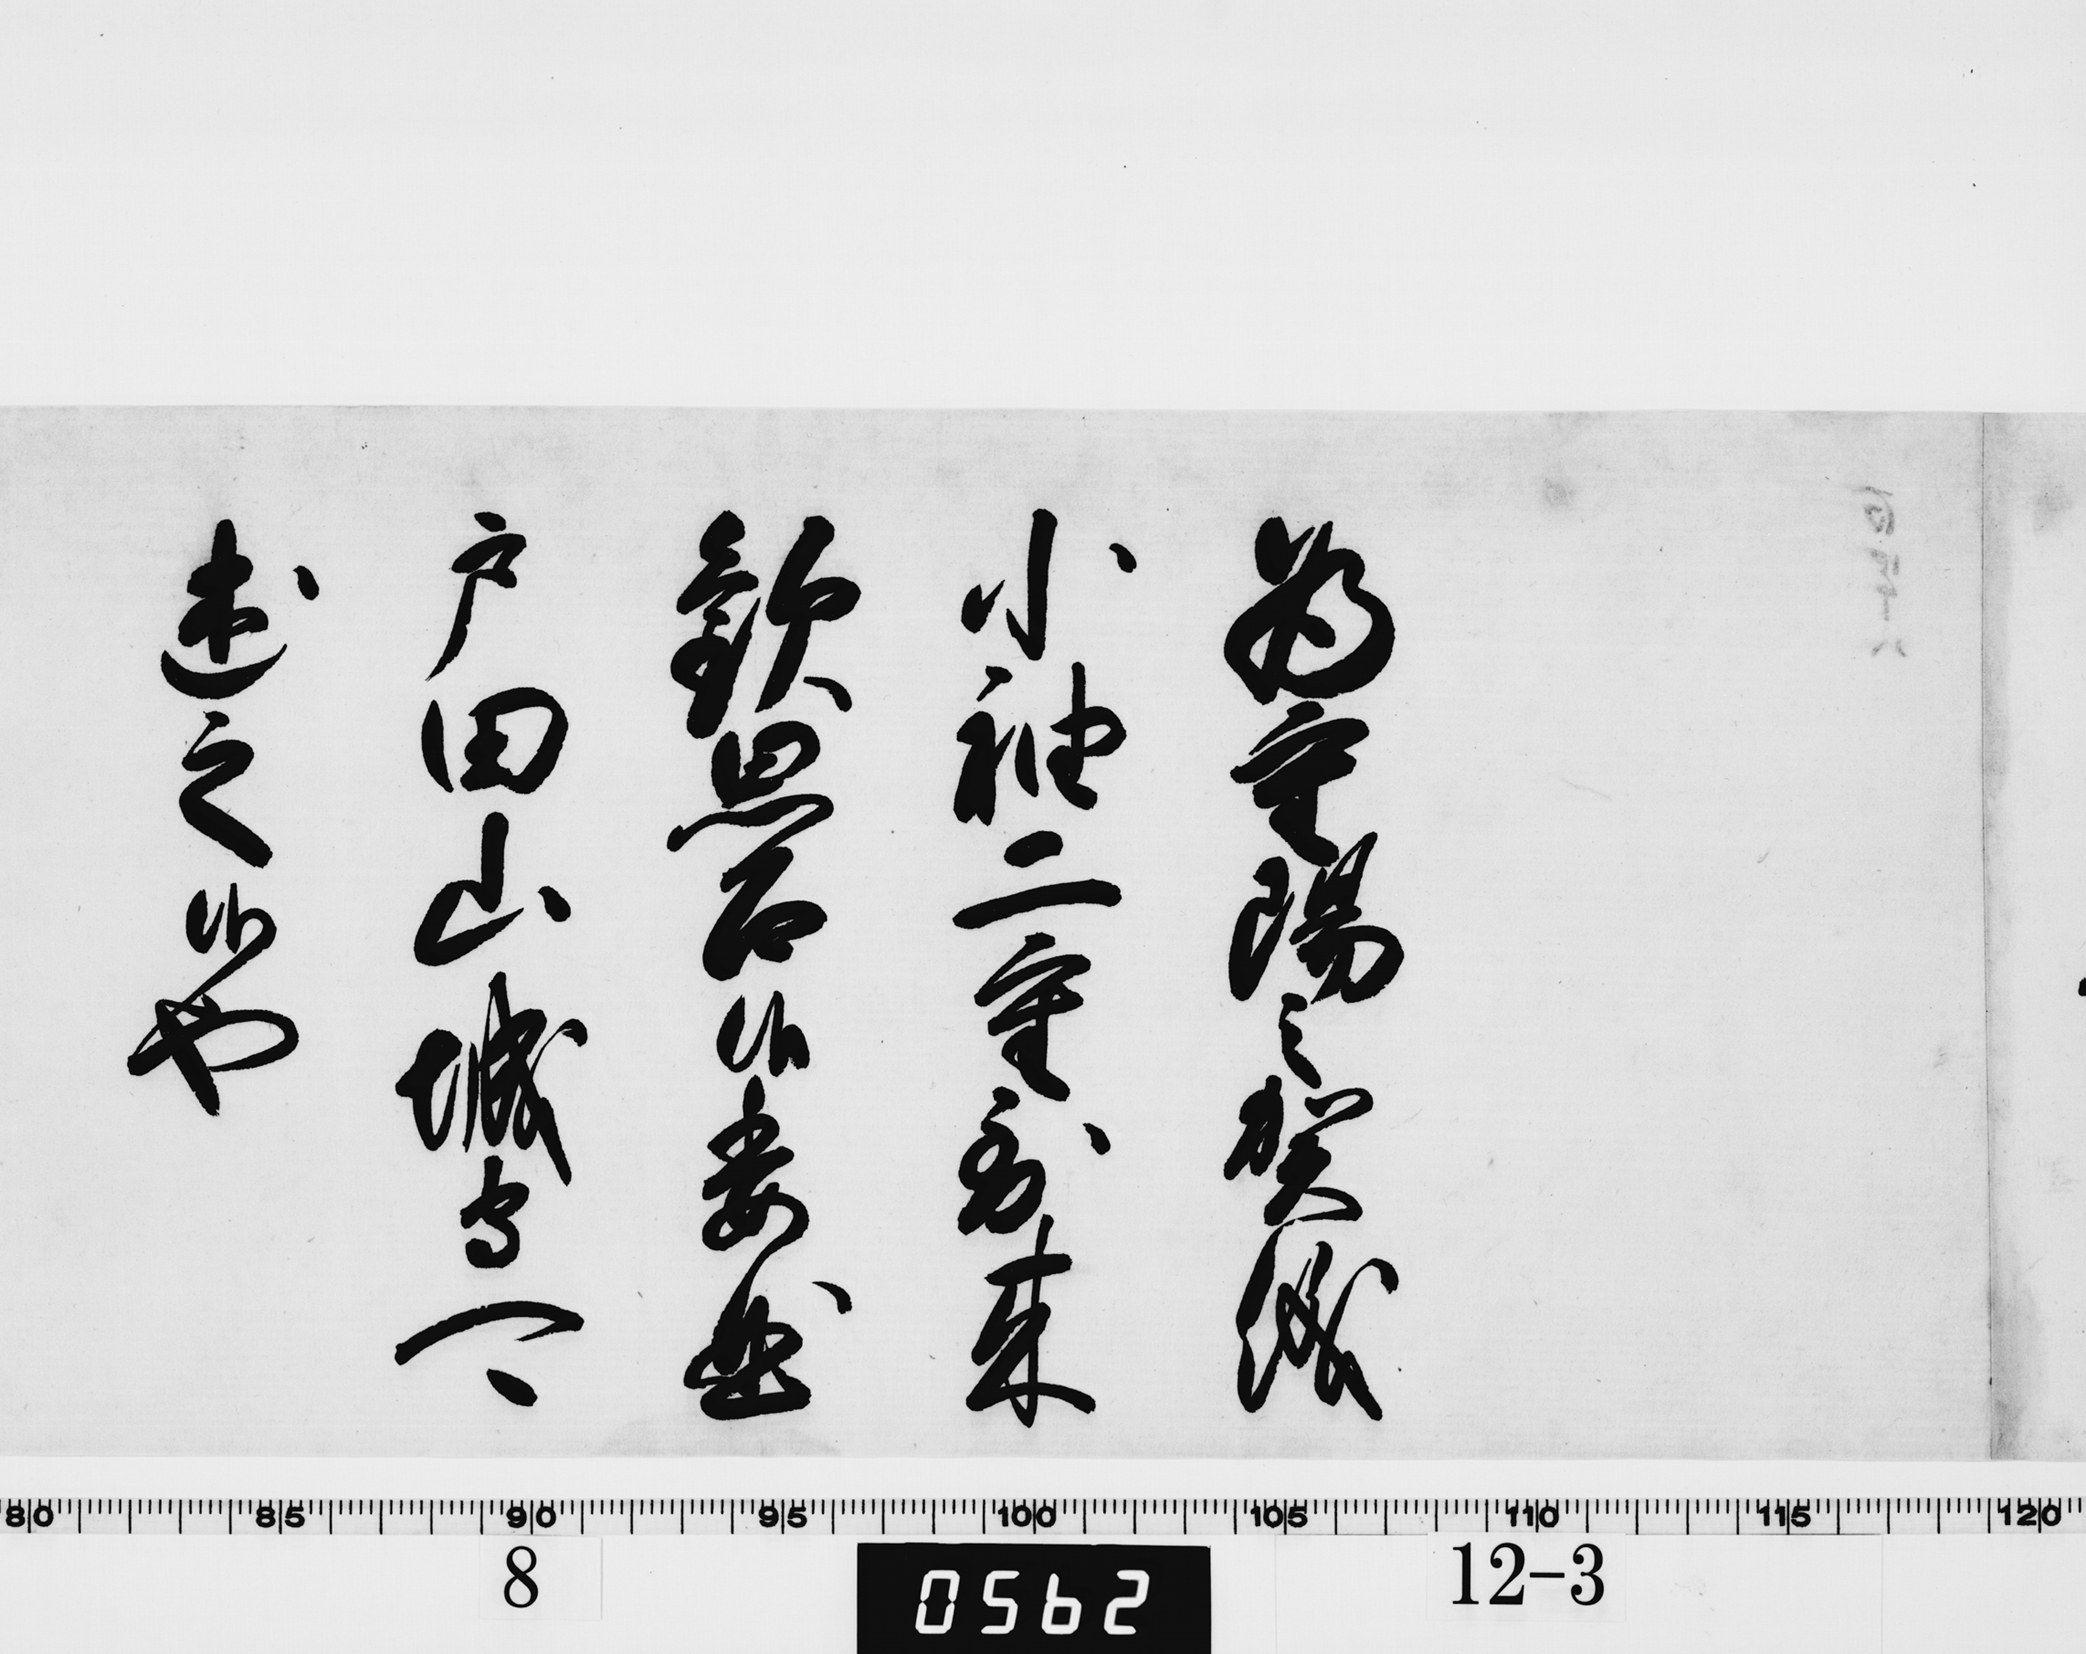 為重陽之賀儀
小袖二重到来
歓思召候委曲
戸田山城守可
述之候也
80 85 90 95 100 105 110 115 120
8 0562 12-3